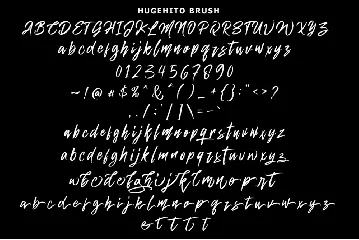 HUGEHITO BRUSH
ABCDEFGHIJKLMNOPQRSTUVWXYZ
abcdefghijklmnopqrstuvwxyz
01234567890
~!@#$%^&*()_+{}:"<>?
,./;'[]\=-`
abcdefghijklmnopqrstuvwxyz
abcdefghijklmnopqrstuvwxyz
a b c d e f g h i j k l m n o p q r s t u v w x y z